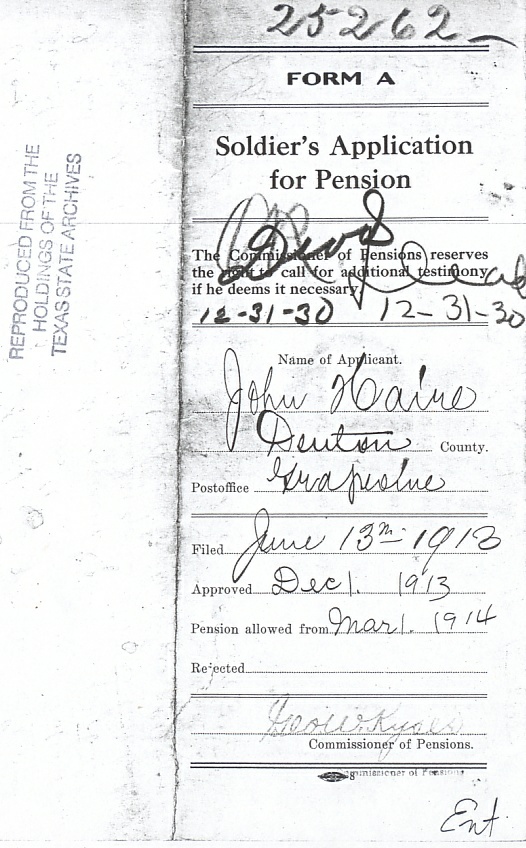 25262
FORM A
Soldier's Application
for Pension
The Commissioner of Pensions reserves
the right to call for additional testimony
if he deems it necessary.
Dead
12-31-30 12-31-30
Name of Applicant.
John Haire
Denton County.
Postoffice Grapevine
Filed June 13th 1913
Approved Dec 1. 1913
Pension allowed from Mar 1. 1914
Rejected
Commissioner of Pensions.
8 Commissioner of Pensions
Ent.
REPRODUCED FROM THE
HOLDINGS OF THE
TEXAS STATE ARCHIVES